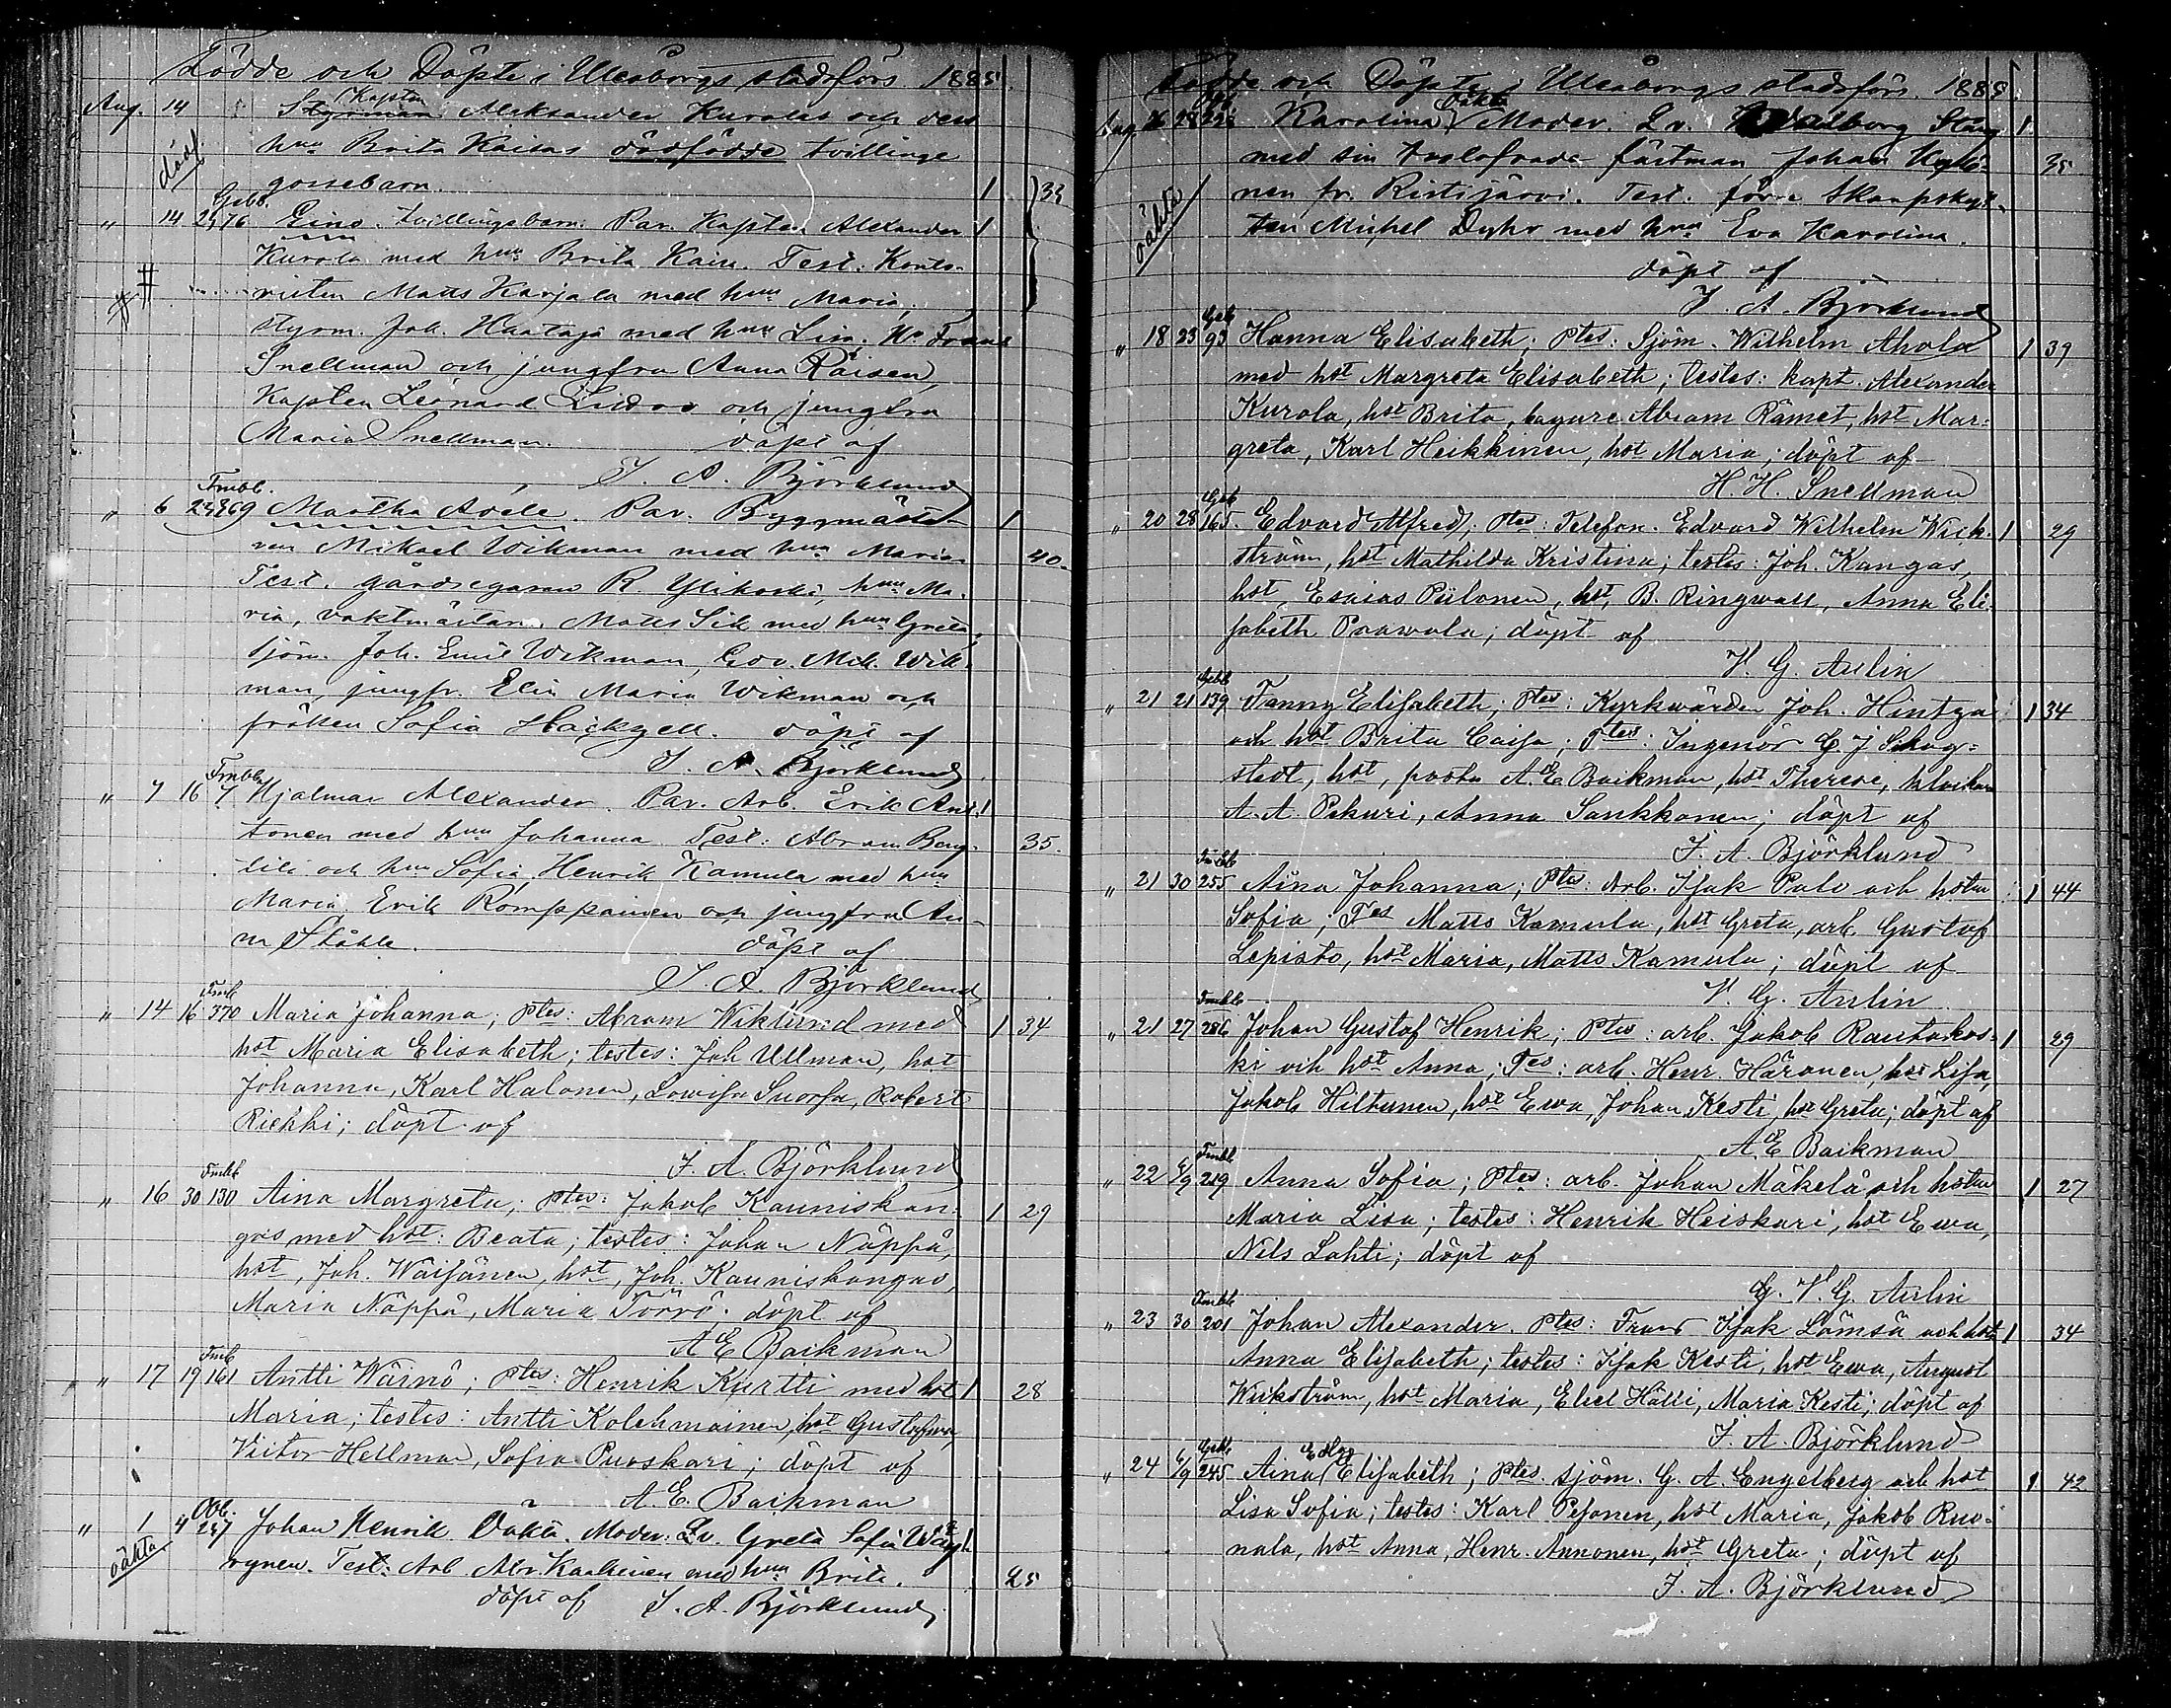 Födde och Döpte i Uleåborgs stadsförs. 1885.
Aug. 14 Styrman Kapten Aleksander Kurolas och dess
död hu Brita Kaisas dödfödde tvillinge
gossebarn. 1 33
Gebb.
" 14 23 76 Eino. tvillingebarn. Par. Kapten Alexander 1
Kurola med hu Brita Kaisa. Test: Konto-
risten Matts Karjala med hu Maria,
styrm. Joh. Haataja med hu Lisa, Hr Frans
Snellman och jungfru Anna Räisen,
Kapten Leonard och jungfru
Maria Snellman. döpt af
J. A. Björklund
Fmbl.
" 6 23 269 Martha Adele. Par. Byggmästa- 1
ren Mikael Wikman med hu Maria 40.
Test. gårdsegaren R. Ylikoski, hu Ma-
ria, vaktmästaren Matts Sik med hu Greta,
sjöm. Joh. Emil Wikman, Mik. Wik-
man, jungfr. Elin Maria Wikman och
fröken Sofia Häckzell. döpt af
J. A. Björklund
Fmbb
" 7 16 7 Hjalmar Alexander. Par. Arb. Erik Ant- 1
tonen med hu Johanna Test: Abram Beng- 35.
tili och hu Sofia, Henrik Kamula med hu
Maria, Erik Romppainen och jungfru An-
na Ståhle. döpt af
J. A. Björklund
Fmb
" 14 16 370 Maria Johanna; Ptes: Abram Wiklund med 1 34
hst Maria Elisabeth; testes: Joh Ullman, hst
Johanna, Karl Halonen, Lowisa Suorsa, Robert
Riekki; döpt af
J. A. Björklund
Fmbb
" 16 30 130 Aina Margreta; Ptes: Jakob Kauniskan- 1 29
gas med hst: Beata; testes: Johan Näppä,
hst, Joh. Wäisänen, hst, Joh. Kauniskangas,
Maria Näppä, Maria Törrö; döpt af
A E Baikman
Fmb
" 17 19 161 Antti Wäinö; Ptes: Henrik Kurtti med hst 1 28
Maria; testes: Antti Kolehmainen, hst Gustafwa,
Victor Hellman, Sofia Puoskari; döpt af
A. E. Baikman
Obb.
" 1 4 247 Johan Henrik Oäkta. Moder: Lv. Greta Sofia Wäy- 1
oäkta rynen. Test: Arb Abr. Kaakinen med hu Brita. 25
döpt af J. A. Björklund
Födde och Döpte i Uleåborgs stadsförs. 1885.
Aug 16 28 Karolina Oäkta Moder. Lv. Walborg Stång 1
med sin trolofvade fästman Johan 35
oäkta nen fr. Ristijärvi. Test. förre Skarpskyt-
ten Michel Dyhr med hu Eva Karolina.
döpt af
J. A. Björklund
Geb
" 18 23 93 Hanna Elisabeth; Ptes: Sjöm. Wilhelm Ahola 1 39
med hst Margreta Elisabeth; testes: kapt. Alexander
Kurola, hst Brita, bagare Abram Rämet, hst Mar-
greta, Karl Heikkinen, hst Maria; döpt af
H. H. Snellman
Geb
" 20 28 165. Edvard Alfred; Ptes: Telefon. Edvard Wilhelm Wick- 1 29
ström, hst Mathilda Kristina; testes: Joh. Kangas,
hst, Esaias Piilonen, hst, B. Ringwall, Anna Eli-
sabeth Paawola; döpt af
V. G. Aulin
Gebb
" 21 21 139 Fanny Elisabeth; Ptes: Kyrkwärden Joh. Hintza 1 34
och hst Brita Caisa; Ttes: Ingeniör C J Skog-
stedt, hst, pastor A. E. Baikman, hst Therese, klockar
A. A. Pekuri, Anna Sankkonen; döpt af
J. A. Björklund
Fmbb
" 21 30 255 Aina Johanna; Ptes: Arb. Isak Palo och hstru 1 44
Sofia; Tes Matts Kamula, hst Greta, arb. Gustaf
Lepistö, hst Maria, Matts Kamula; döpt af
V. G. Aulin
Fmbb
" 21 27 286 Johan Gustaf Henrik; Ptes: arb. Jakob Rautakos- 1 29
ki och hst Anna; Tes: arb. Henr. Häronen, hst Lisa,
Jakob Hiltunen, hst Ewa, Johan Kesti, hst Greta; döpt af
A E Baikman
Fmbb
" 22 6/9 219 Anna Sofia; Ptes: arb. Johan Mäkelä och hstru 1 27
Maria Lisa; testes: Henrik Heiskari, hst Ewa,
Nils Lahti; döpt af
G. V. G. Aulin
Fmbb
" 23 30 201 Johan Alexander. Ptes: Frans Isak Lämsä och hstr 1 34
Anna Elisabeth; testes: Isak Kesti, hst Ewa, August
Wickström, hst Maria, Eliel Hälli, Maria Kesti; döpt af
J. A. Björklund
Gebb
" 24 6/9 245 Aina Edla Elisabeth; Ptes. sjöm. G. A. Engelberg och hst 1 42
Lisa Sofia; testes: Karl Pesonen, hst Maria, Jakob Ruo-
nala, hst Anna, Henr. Annonen, hst Greta; döpt af
J. A. Björklund